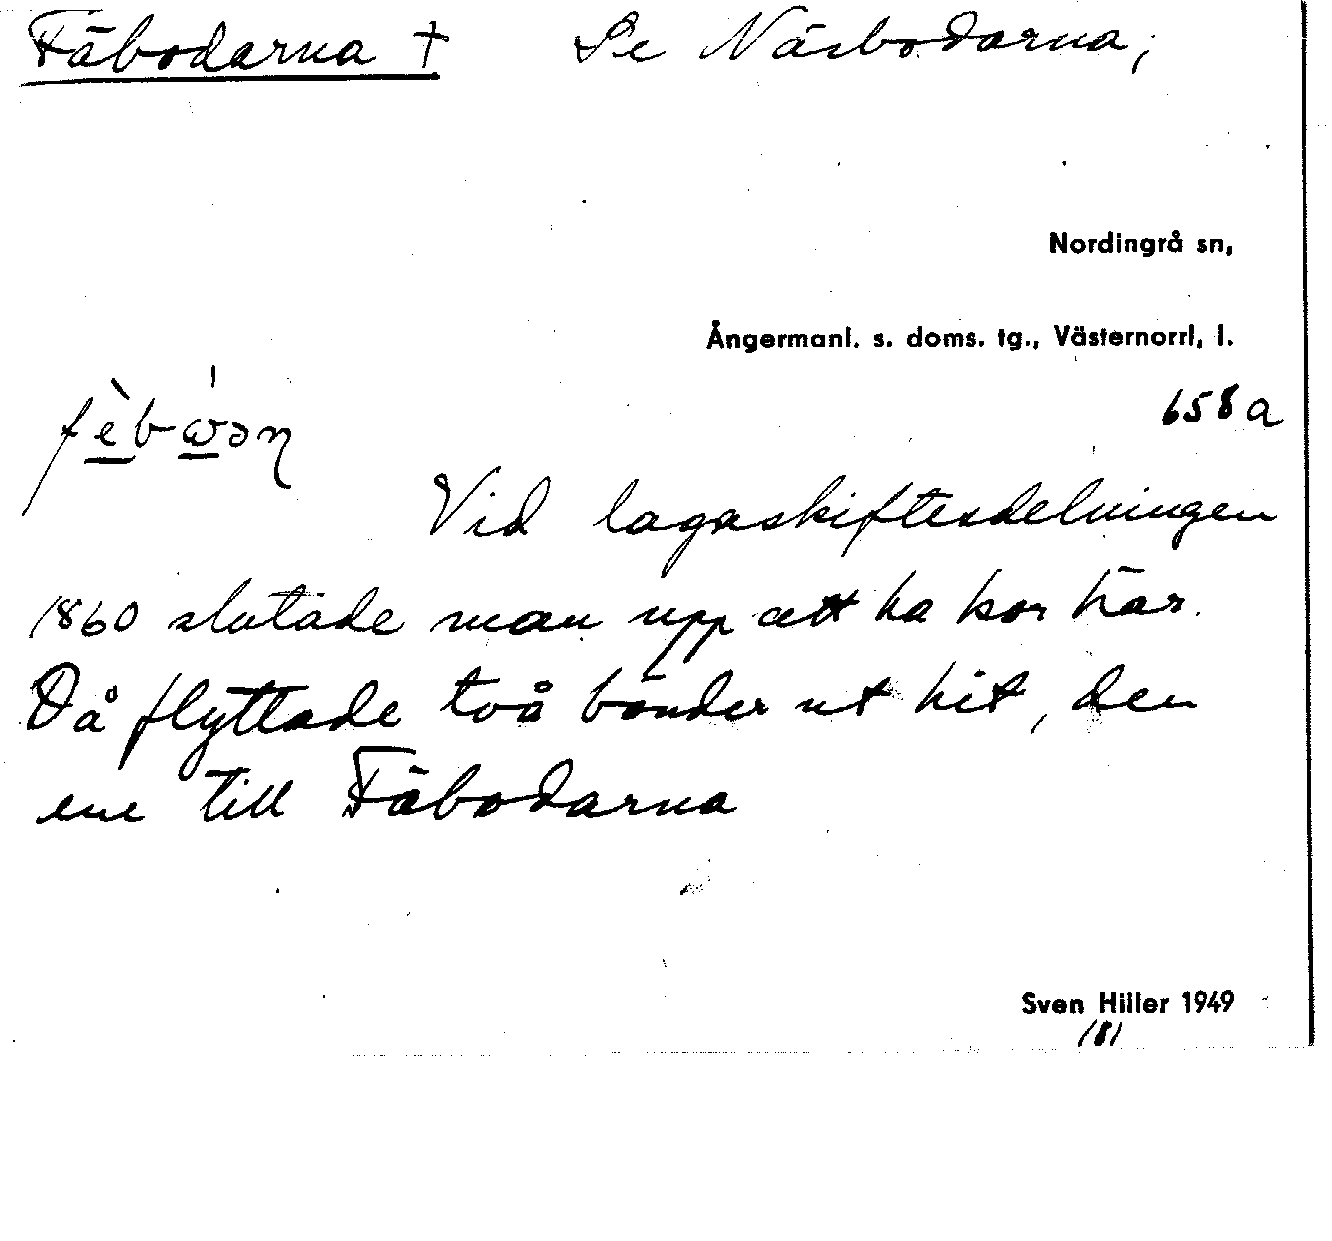 Fäbodarna † Se Näsbodarna;
Nordingrå sn,
Ångermanl. s. doms. tg., Västernorrl. l.
658 a
Vid lagaskiftesdelningen
1860 slutade man upp att ha kor här.
Då flyttade två bönder ut hit, den
ene till Fäbodarna
Sven Hiller 1949
181